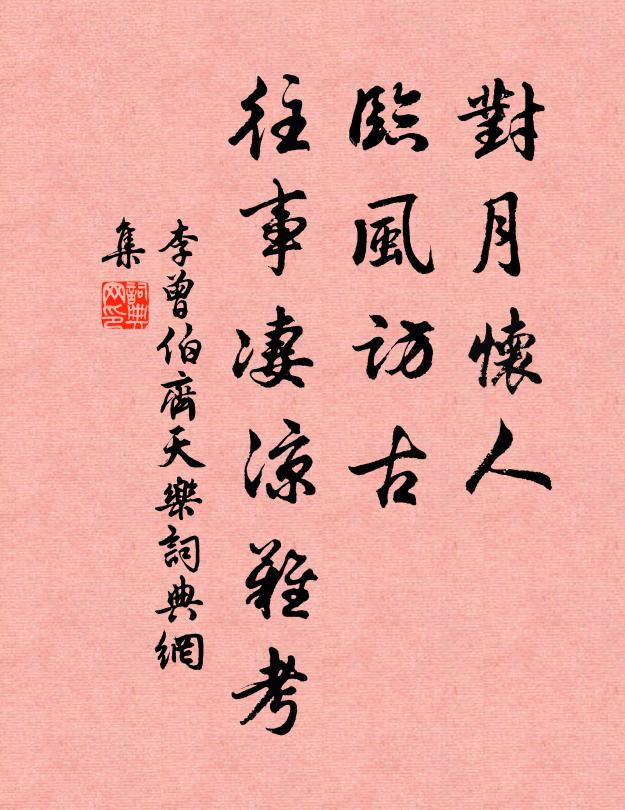 對月懷人
臨風訪古
往事淒涼難考
李曾伯齊天樂詞典網
集
詞典
网印